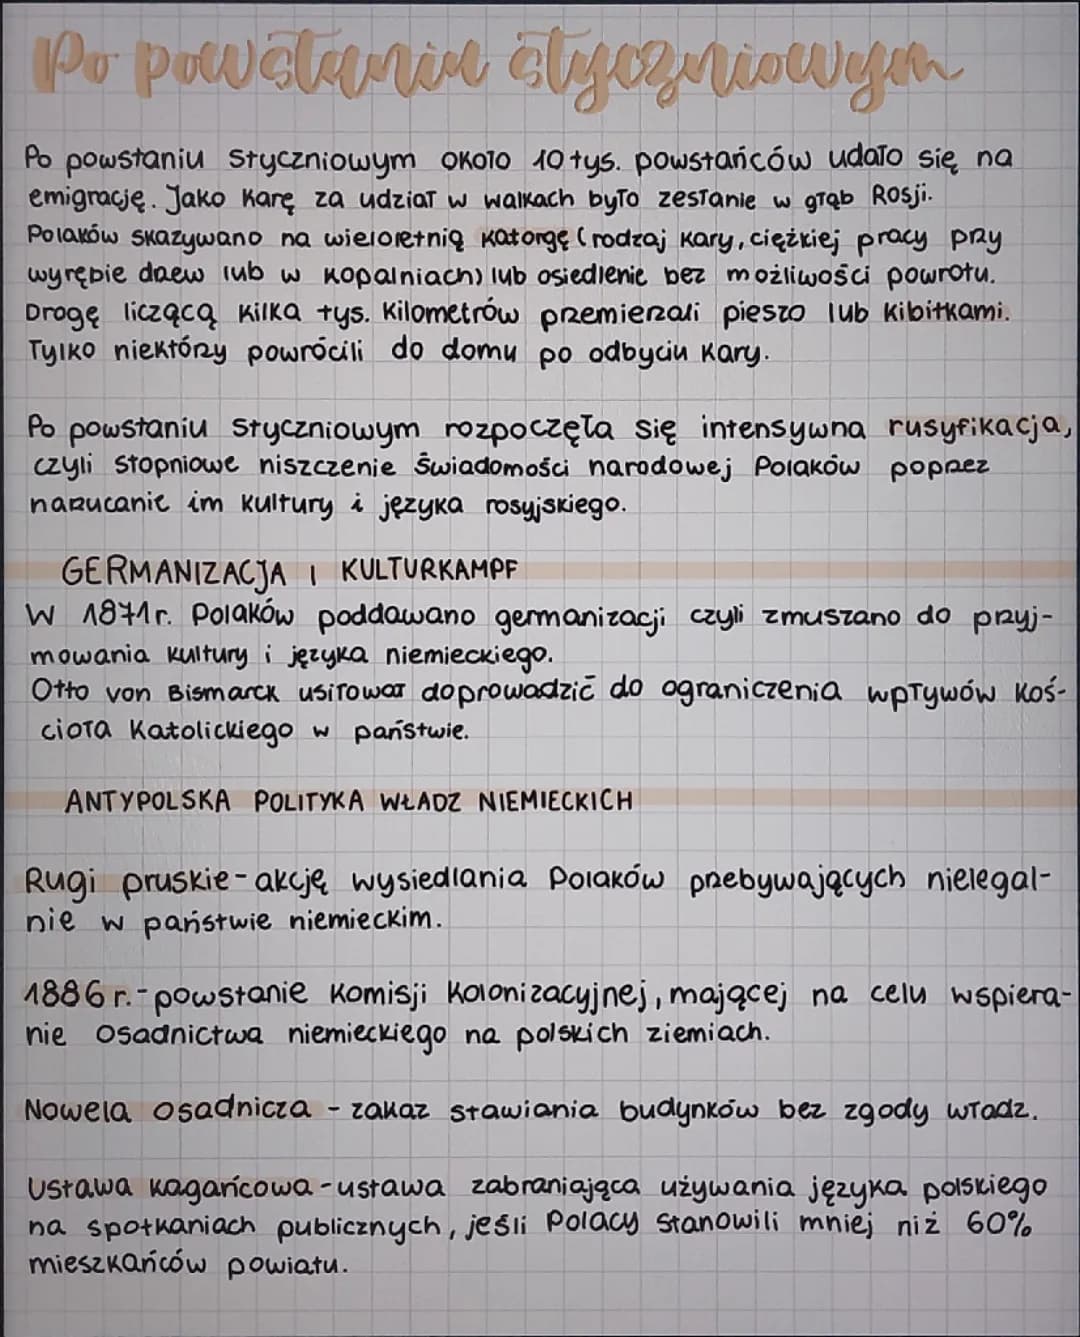 Po powstaniu styczniowym
Po powstaniu styczniowym około 10 tys. powstańców udało się na
emigrację. Jako karę za udział w walkach było zesłanie w głąb Rosji.
Polaków skazywano na wieloletnią katorgę (rodzaj kary, ciężkiej pracy przy
wyrębie drzew lub w kopalniach) lub osiedlenie bez możliwości powrotu.
Drogę liczącą kilka tys. kilometrów przemierzali pieszo lub kibitkami.
Tylko niektórzy powrócili do domu po odbyciu kary.
Po powstaniu styczniowym rozpoczęła się intensywna rusyfikacja,
czyli stopniowe niszczenie świadomości narodowej Polaków poprzez
narzucanie im kultury i języka rosyjskiego.
GERMANIZACJA I KULTURKAMPF
W 1871r. Polaków poddawano germanizacji czyli zmuszano do przyj-
mowania kultury i języka niemieckiego.
Otto von Bismarck usiłował doprowadzić do ograniczenia wpływów Koś-
cioła Katolickiego w państwie.
ANTYPOLSKA POLITYKA WŁADZ NIEMIECKICH
Rugi pruskie - akcję wysiedlania Polaków przebywających nielegal-
nie w państwie niemieckim.
1886 r. - powstanie Komisji Kolonizacyjnej, mającej na celu wspiera-
nie osadnictwa niemieckiego na polskich ziemiach.
Nowela osadnicza - zakaz stawiania budynków bez zgody władz.
Ustawa kagańcowa - ustawa zabraniająca używania języka polskiego
na spotkaniach publicznych, jeśli Polacy stanowili mniej niż 60%
mieszkańców powiatu.